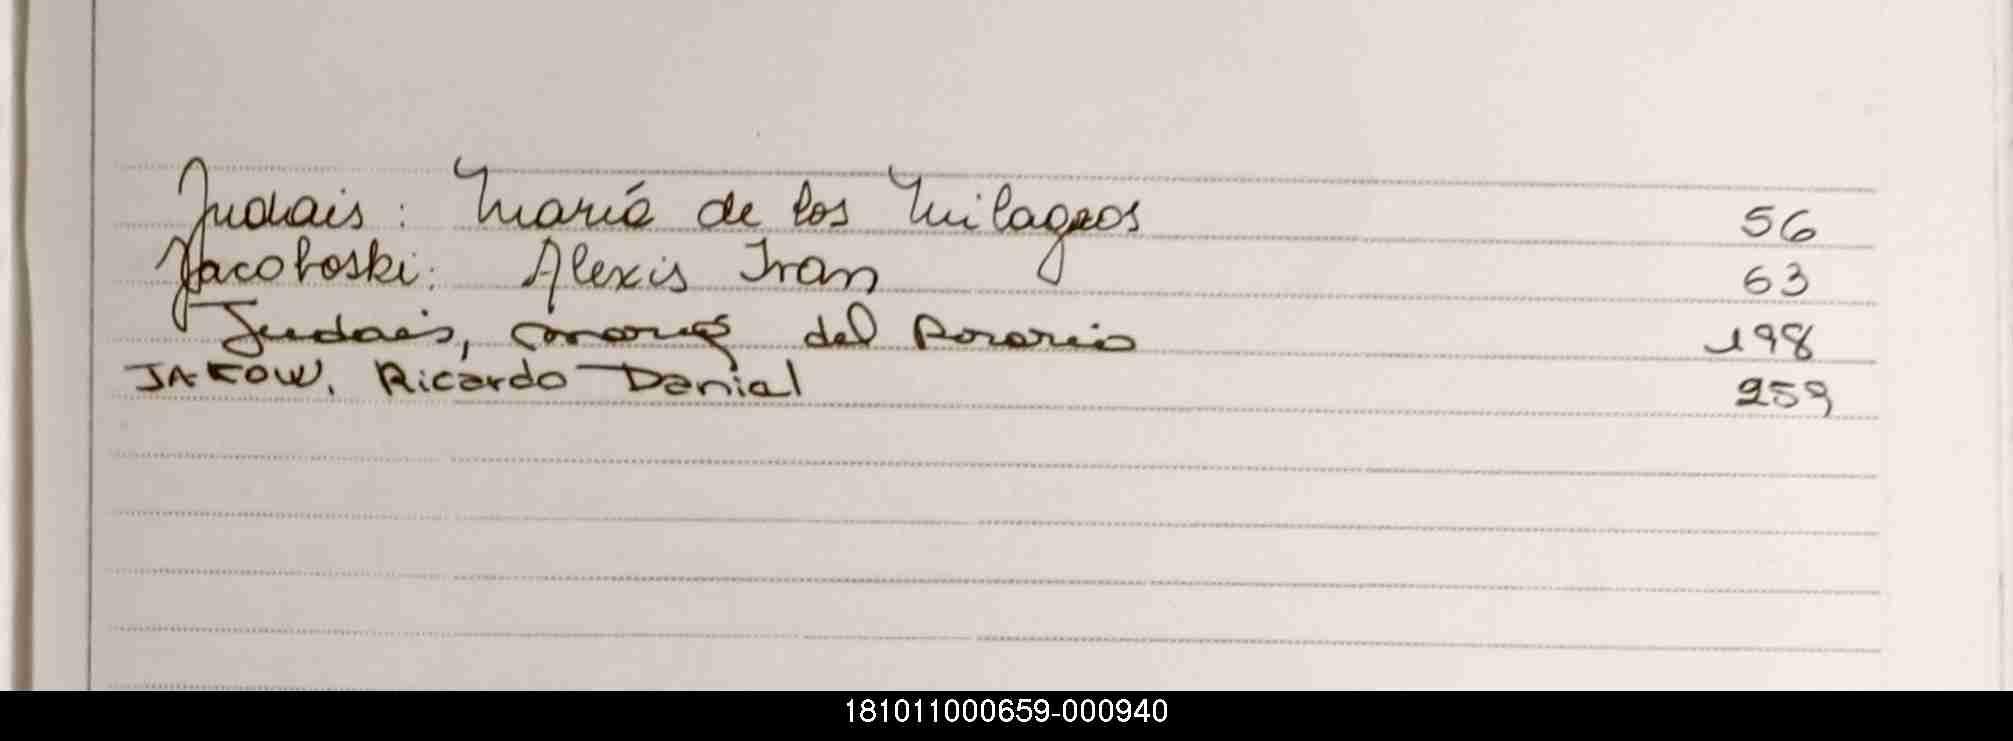 Judais: María de los Milagros 56
Jacoboski: Alexis Ivan 63
Judais, María del Rosario 198
JAKOW, Ricardo Daniel 259
181011000659-000940